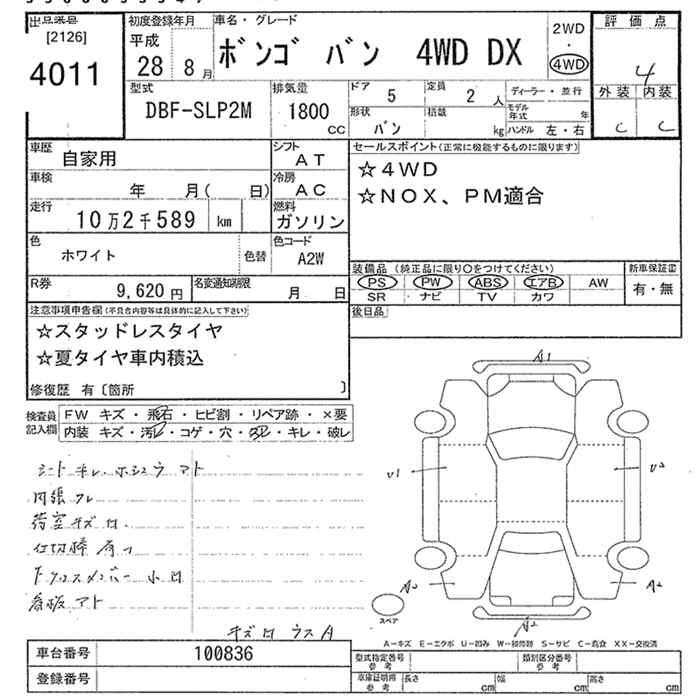 出品番号
[2126]
4011
初度登録年月
平成
28 8 月
車名・グレード
ボンゴ バン 4WD DX
2WD
・
4WD
評価点
4
外装 内装
C C
型式
DBF-SLP2M
排気量
1800
CC
ドア
5
定員
2 人
ディーラー・並行
形状
バン
積載
kg
モデル年式 年
ハンドル 左・右
車歴
自家用
シフト
AT
車検
年 月( 日)
冷房
AC
走行
10万2千589 km
燃料
ガソリン
色
ホワイト
色替
色コード
A2W
R券
9,620 円
名変通知期限
月 日
セールスポイント(正常に機能するものに限ります)
☆4WD
☆NOX、PM適合
装備品(純正品に限り○をつけてください)
PS PW ABS エアB AW
SR ナビ TV カワ
新車保証書
有・無
後日品
注意事項申告欄(不具合内容等は具体的に記入して下さい)
☆スタッドレスタイヤ
☆夏タイヤ車内積込
修復歴 有〔箇所 〕
検査員記入欄
FW キズ・飛石・ヒビ割・リペア跡・×要
内装 キズ・汚レ・コゲ・穴・欠ヒ・キレ・破レ
シートキレ、ホシュウアト
内張クレ
荷室キズ
仕切棒有り
下クロスメンバー
看板アト
キズ ウスA
A1
U1
U2
A2
A2
スペア
A-キズ E-エクボ U-凹み W-補修跡 S-サビ C-腐食 XX-交換済
車台番号
100836
登録番号
型式指定番号 参考
類別区分番号 参考
車庫証明用 参考
長さ cm
幅 cm
高さ cm